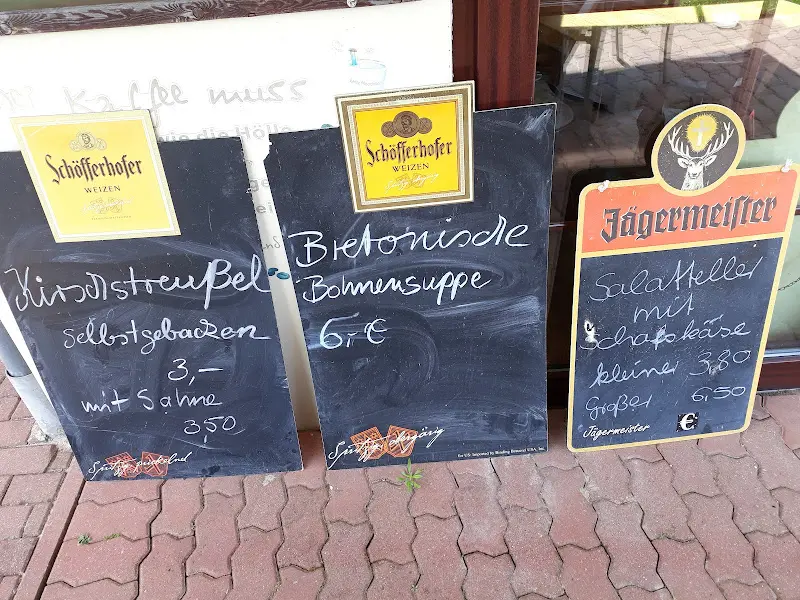 Kaffee muss
wie die Hölle
Schöfferhofer
WEIZEN
Kirschstreußel
selbstgebacken
3,-
mit Sahne
3,50
Schöfferhofer
WEIZEN
Bretonische
Bohnensuppe
6,-€
Jägermeister
Salatteller
mit
Schafskäse
kleiner 3,80
Großer 6,50
Jägermeister
€